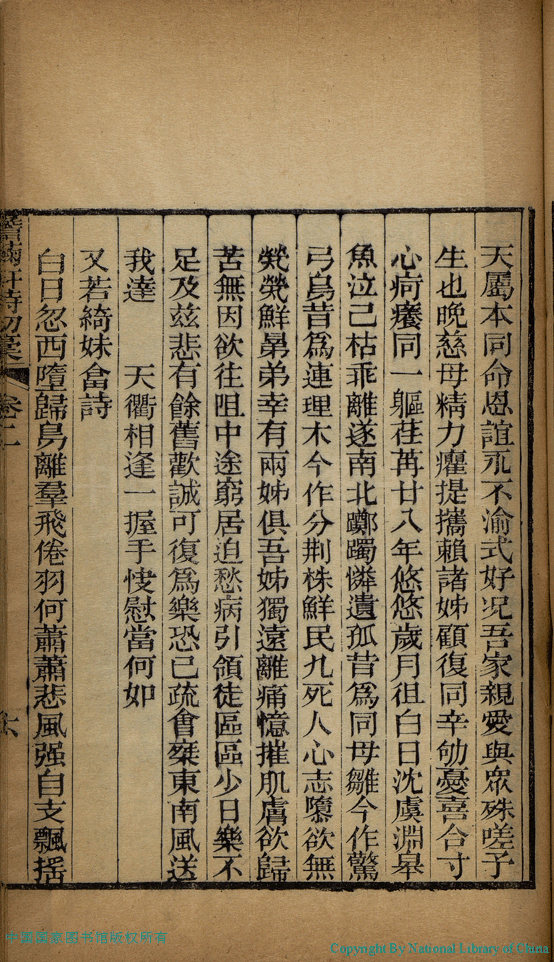 天屬本同命恩誼永不渝式好況吾家親愛與眾殊嗟予
生也晚慈母精力癯提攜賴諸姊顧復同辛劬憂喜合寸
心疴癢同一軀荏苒廿八年悠悠歲月徂白日沈虞淵皋
魚泣已枯乖離遂南北躑躅憐遺孤昔為同母雛今作驚
弓鳥昔為連理木今作分荊株鮮民九死人心志隳欲無
煢煢鮮昆弟幸有兩姊俱吾姊獨遠離痛憶摧肌膚欲歸
苦無因欲往咀中途窮居迫愁病引領徒區區少日樂不
足及茲悲有餘舊歡誠可復為樂恐已疏會乘東南風送
我達　天衢相逢一握手悽慰當何如
又若綺妹畣詩
白日忽西墮歸鳥離羣飛倦羽何蕭蕭悲風强自支飄搖
軒詩初稾　卷十二　六
中国国家图书馆版权所有
Copyright By National Library of China